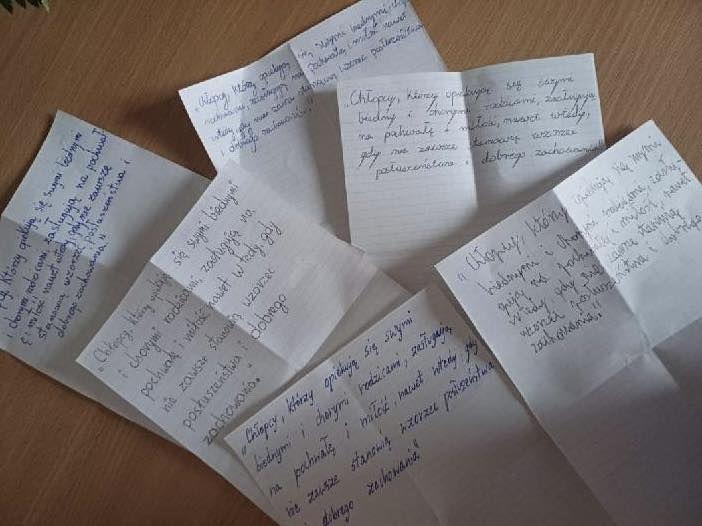 "Chłopcy, którzy opiekują się swymi biednymi i
chorymi rodzicami, zasługują
na pochwałę i miłość nawet
wtedy, gdy nie zawsze stanowią wzorzec posłuszeństwa
i dobrego zachowania"
"Chłopcy, którzy opiekują się swymi
biedny i chorymi rodzicami, zasługują
na pochwałę i miłość, nawet wtedy,
gdy nie zawsze stanowią wzorzec
posłuszeństwa i dobrego zachowania"
którzy opiekują się swymi biednymi
chorymi rodzicami, zasługują na pochwał
i miłość nawet wtedy, gdy nie zawsze
stanowią wzorzec posłuszeństwa i
dobrego zachowania"
"Chłopcy, którzy się swymi biednymi
i chorymi rodzicami, zasługują na
pochwałę i miłość nawet w tedy, gdy
nie zawsze stanowią wzorzec
posłuszeństwa i dobrego
zachowania."
"Chłopcy, którzy opiekują się swymi
biednymi i chorymi rodzicami, zasłu-
gują na pochwałę i miłość, nawet
wtedy gdy nie zawsze stanowią
wzorzec posłuszeństwa i dobrego
zachowania"
"Chłopcy, którzy opiekują się swymi
biednymi i chorymi rodzicami, zasługują
na pochwałę i miłość nawet wtedy, gdy
nie zawsze stanowią wzorzec posłuszeństwa
i dobrego zachowania"